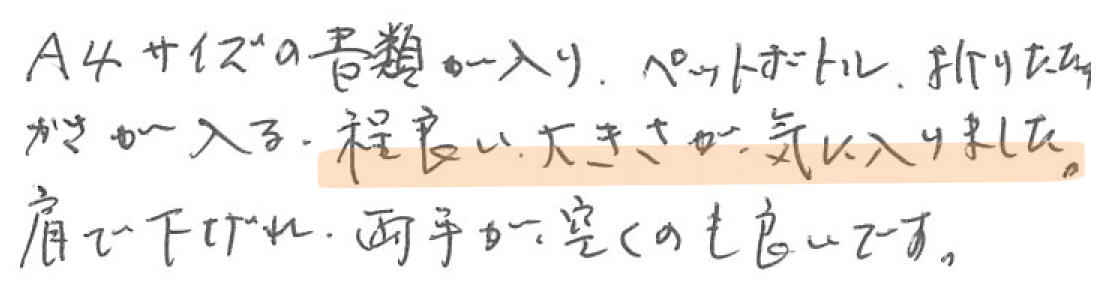 A4サイズの書類が入り、ペットボトル、折りたたみ
がさが入る、程良い大きさが、気に入りました。
肩で下げれ、両手が、空くのも良いです。